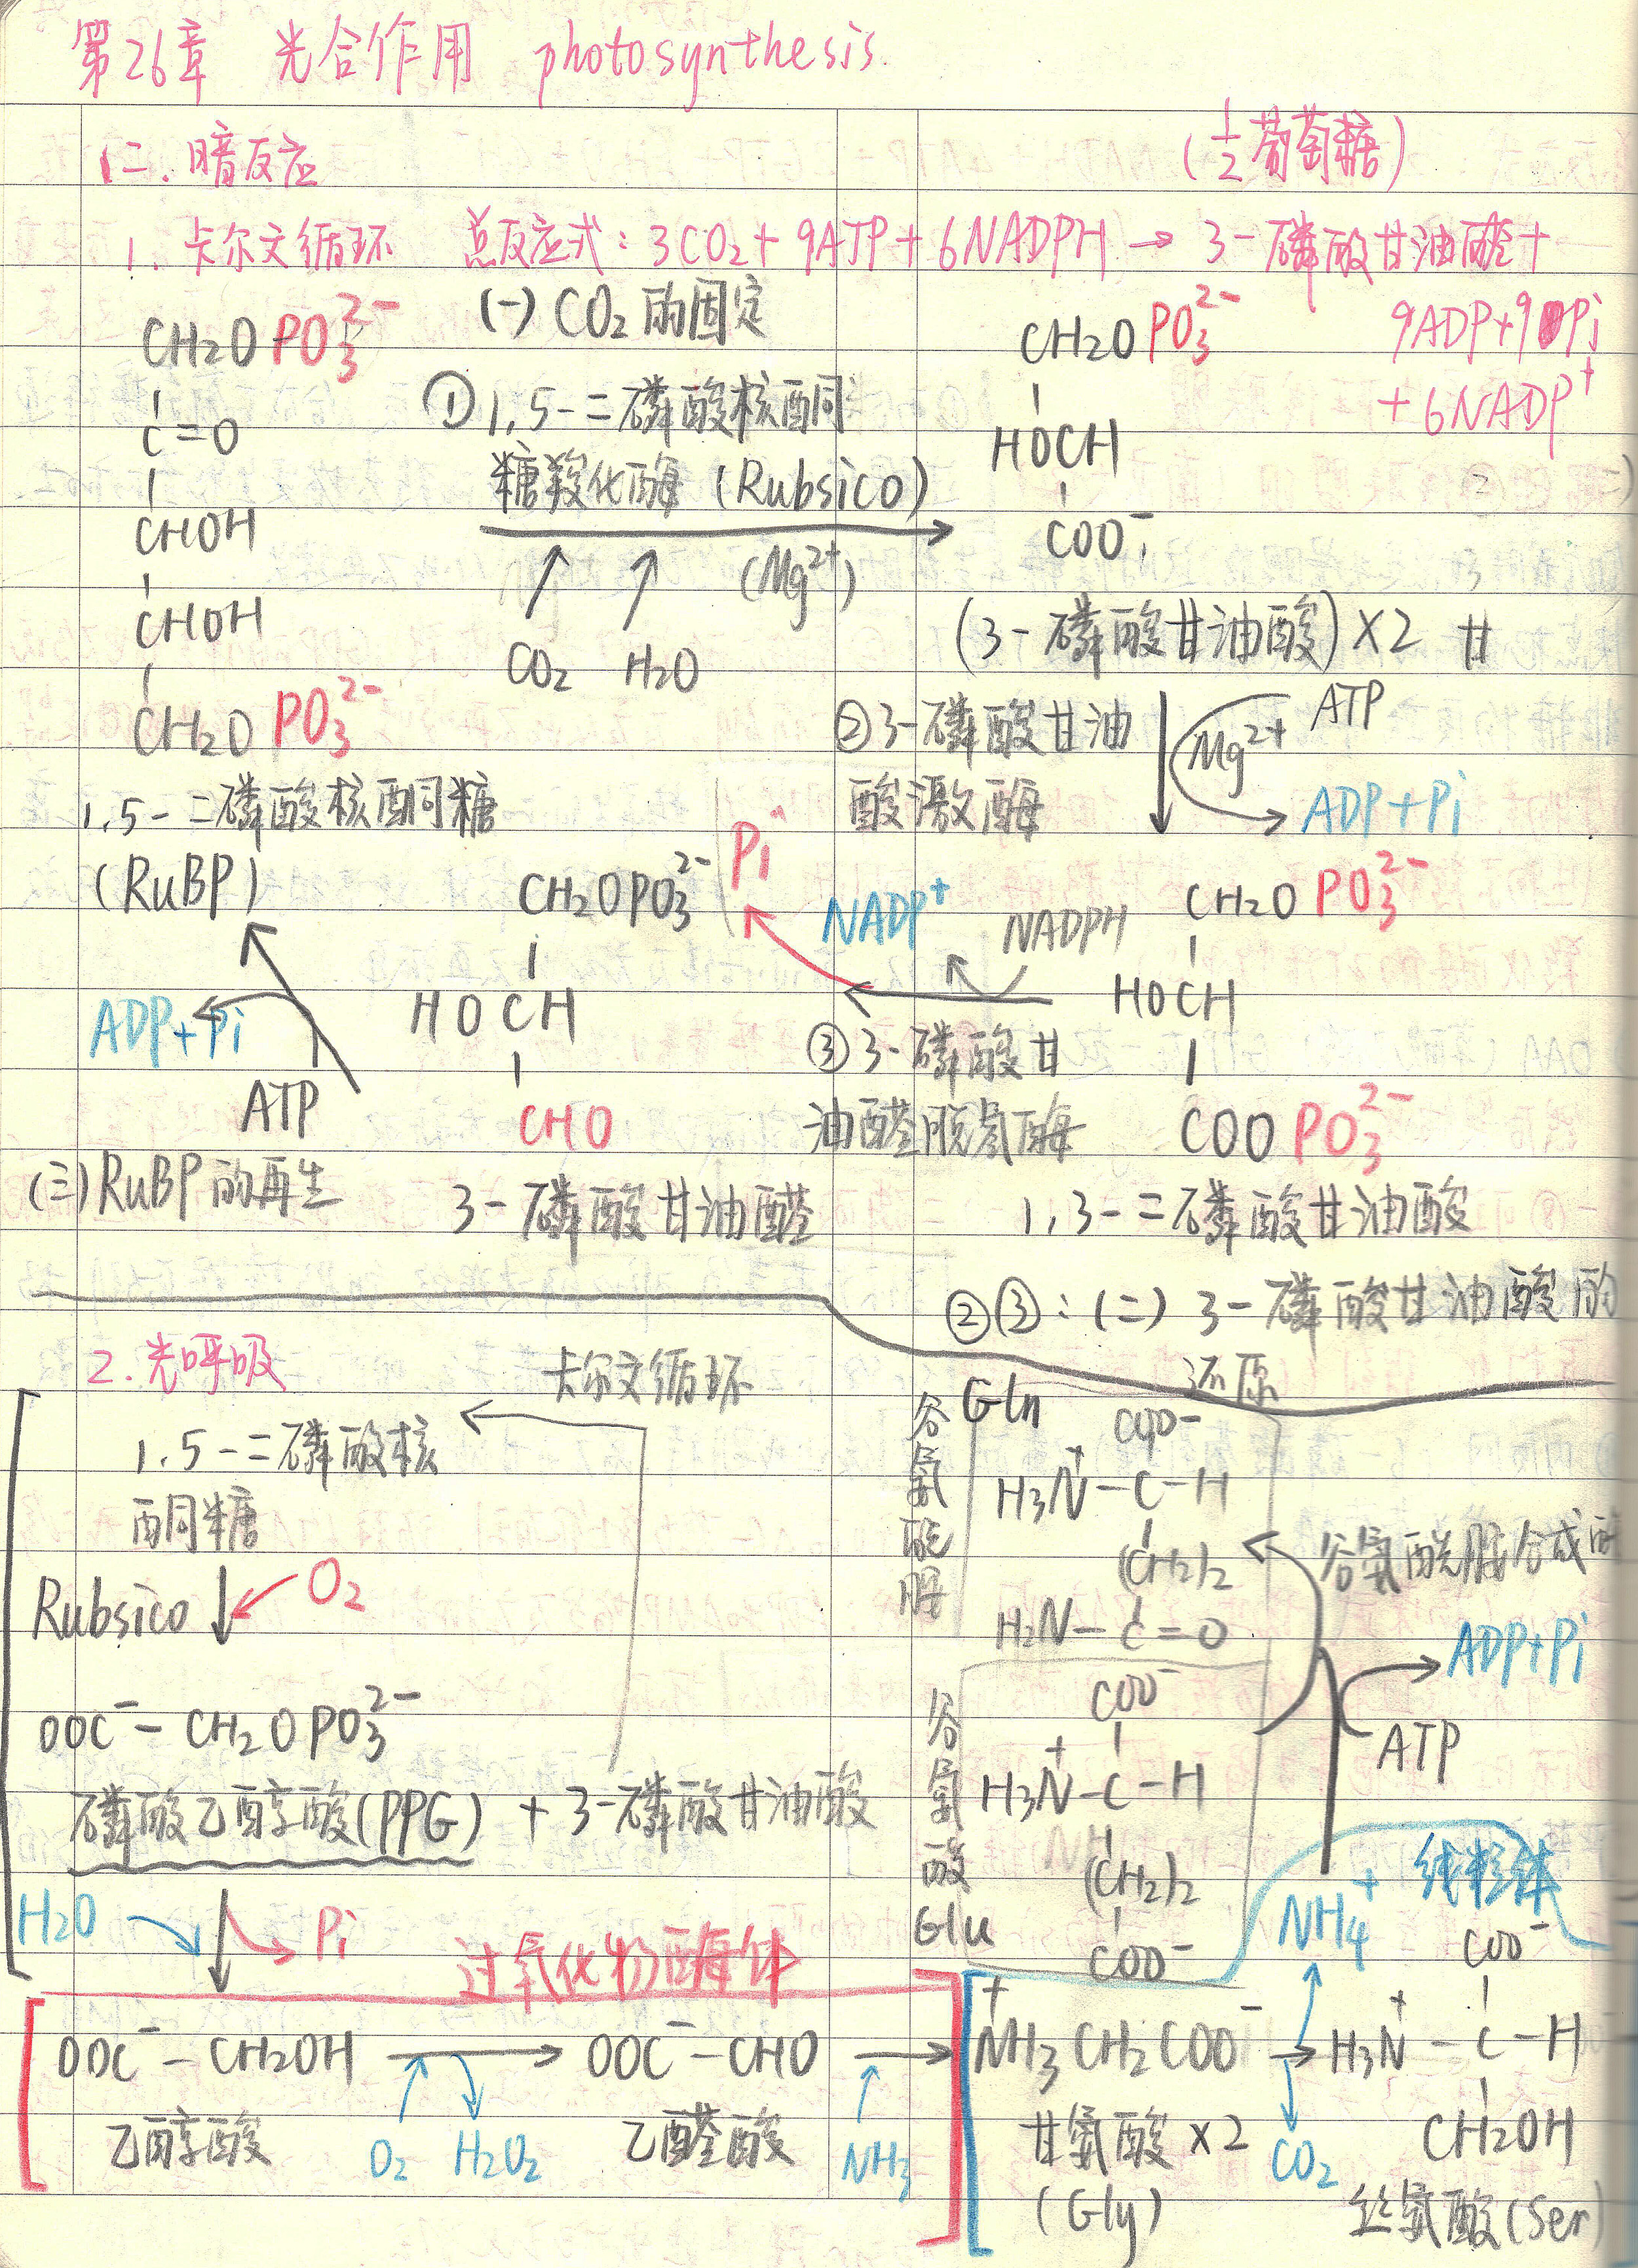 第26章 光合作用 photosynthesis.
(二. 暗反应
(½葡萄糖)
1. 卡尔文循环 总反应式: 3CO₂+9ATP+6NADPH→3-磷酸甘油醛+
9ADP+9Pi
+6NADP⁺
(一) CO₂的固定
CH₂OPO₃²⁻
C=O
CHOH
CHOH
CH₂OPO₃²⁻
1,5-二磷酸核酮糖
(RuBP)
①1,5-二磷酸核酮
糖羧化酶 (Rubsico)
(Mg²⁺)
CO₂ H₂O
CH₂OPO₃²⁻
HOCH
COO⁻
(3-磷酸甘油酸)×2 甘
②3-磷酸甘油
酸激酶
Mg²⁺
ATP
ADP+Pi
CH₂OPO₃²⁻
HOCH
COOPO₃²⁻
1,3-二磷酸甘油酸
Pi
NADP⁺
NADPH
③3-磷酸甘
油醛脱氢酶
CH₂OPO₃²⁻
HOCH
CHO
3-磷酸甘油醛
ADP+Pi
ATP
(三)RuBP的再生
②③:(二) 3-磷酸甘油酸的
还原
2.光呼吸
卡尔文循环
1.5-二磷酸核
酮糖
Rubsico
O₂
OOC⁻-CH₂OPO₃²⁻
磷酸乙醇酸(PPG) + 3-磷酸甘油酸
H₂O
Pi
过氧化物酶体
OOC⁻-CH₂OH
乙醇酸
O₂ H₂O₂
OOC⁻-CHO
乙醛酸
NH₃
谷氨酰胺
Gln
COO⁻
H₃N⁺-C-H
(CH₂)₂
H₂N-C=O
谷氨酰胺合成
ADP+Pi
ATP
谷氨酸
Glu
COO⁻
H₃N⁺-C-H
(CH₂)₂
COO⁻
NH₄⁺
线粒体
⁺NH₃CH₂COO⁻
甘氨酸×2
(Gly)
CO₂
COO⁻
H₃N⁺-C-H
CH₂OH
丝氨酸(Ser)